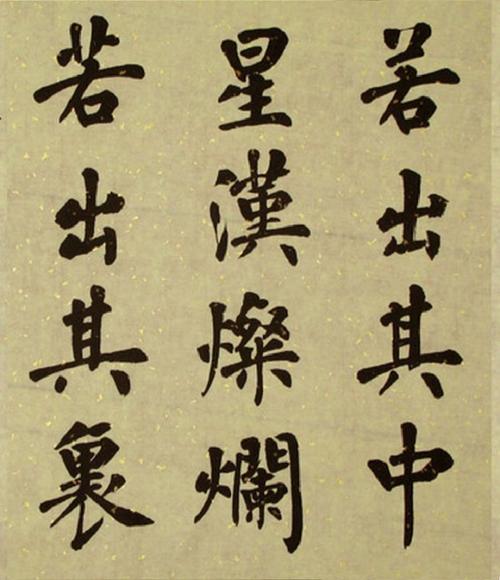 若出其中
星漢燦爛
若出其裏